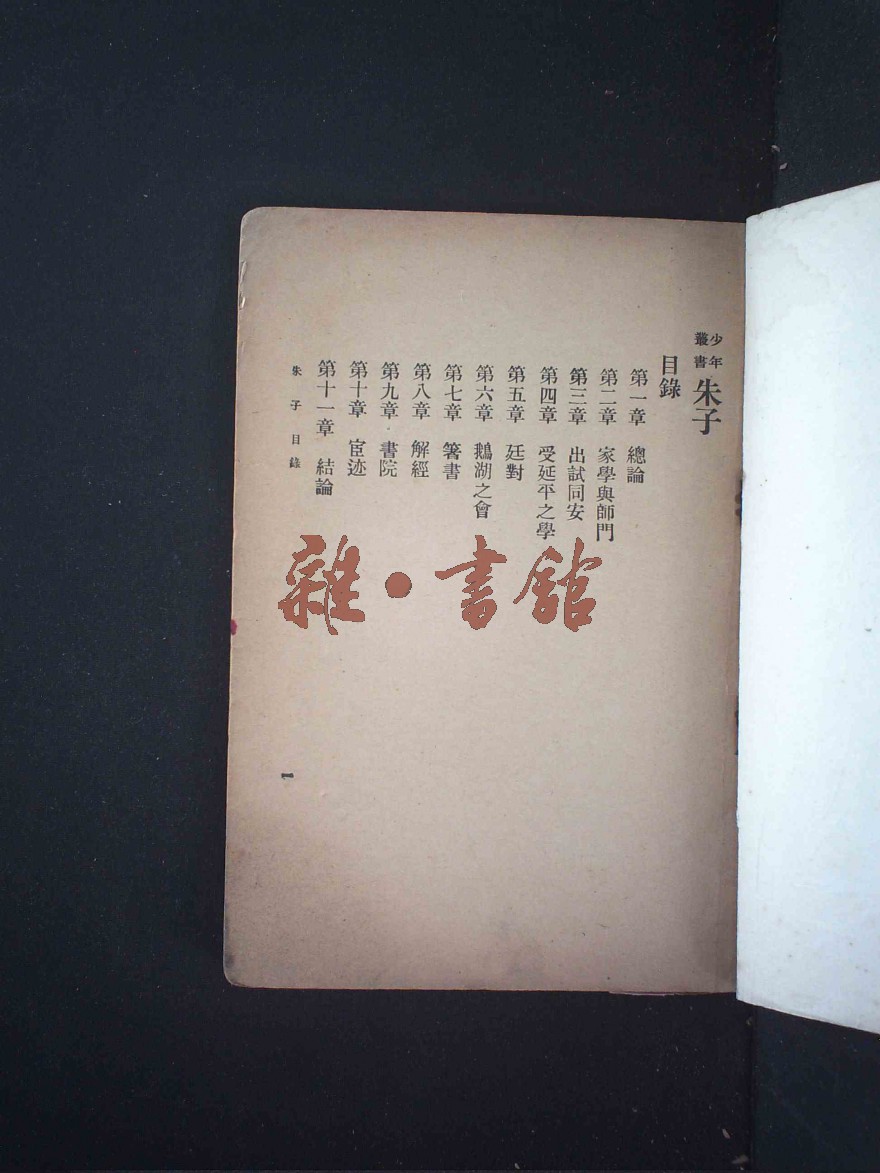 少年叢書 朱子
目錄
第一章 總論
第二章 家學與師門
第三章 出試同安
第四章 受延平之學
第五章 廷對
第六章 鵝湖之會
第七章 箸書
第八章 解經
第九章 書院
第十章 宦迹
第十一章 結論
朱子 目錄
一
雜·書館